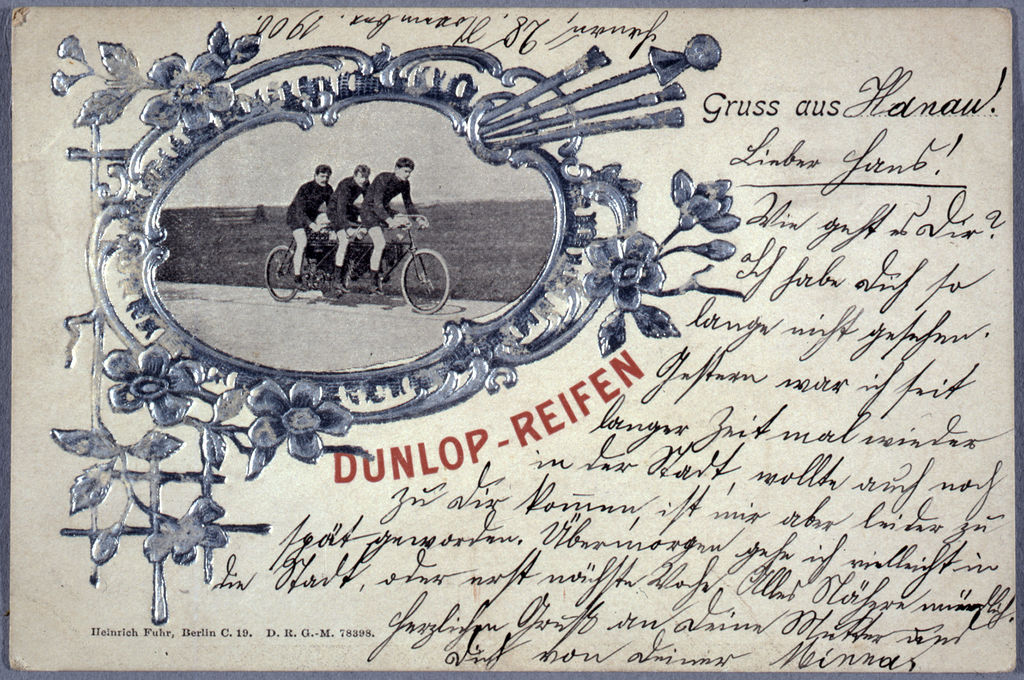 Hanau, 28. November. 1900.
Gruss aus Hanau!
Lieber Hans!
Wie geht es Dir?
Ich habe Dich so
lange nicht gesehen.
Gestern war ich seit
langer Zeit mal wieder
in der Stadt, wollte auch noch
zu Dir kommen, ist mir aber leider zu
spät geworden. Übermorgen gehe ich vielleicht in
die Stadt, oder erst nächste Woche. Alles Nähere mündlich.
Herzlichen Gruß an Deine Mutter und
Dich von Deiner Minna.
DUNLOP-REIFEN
Heinrich Fuhr, Berlin C. 19. D. R. G.-M. 78398.